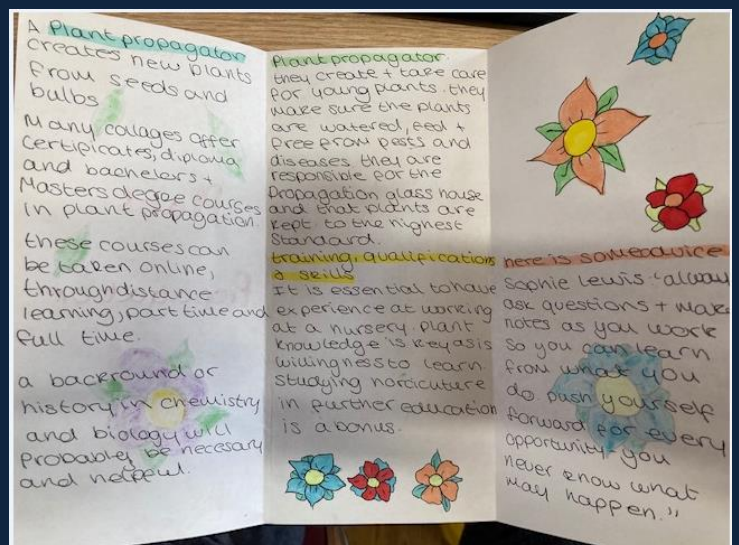 A Plant propagator
creates new plants
from seeds and
bulbs
Many collages offer
certificates, diploma
and bachelors +
Masters degree courses
in plant propagation.
these courses can
be taken online,
through distance
learning, part time and
full time.
a backround or
history in chemistry
and biology will
probabley be necesary
and helpful.
Plant propagator.
they create + take care
for young plants. they
make sure the plants
are watered, feed +
free from pests and
diseases. they are
responsible for the
Propagation glass house
and that plants are
kept to the highest
standard.
training, qualifications
& skills
It is essential to have
experience at working
at a nursery. Plant
knowledge is key as is
willingness to learn.
studying horticuture
in further education
is a bonus.
here is some advice
Sophie Lewis: "always
ask questions + make
notes as you work
so you can learn
from what you
do push yourself
forward for every
opportunity you
never know what
may happen."